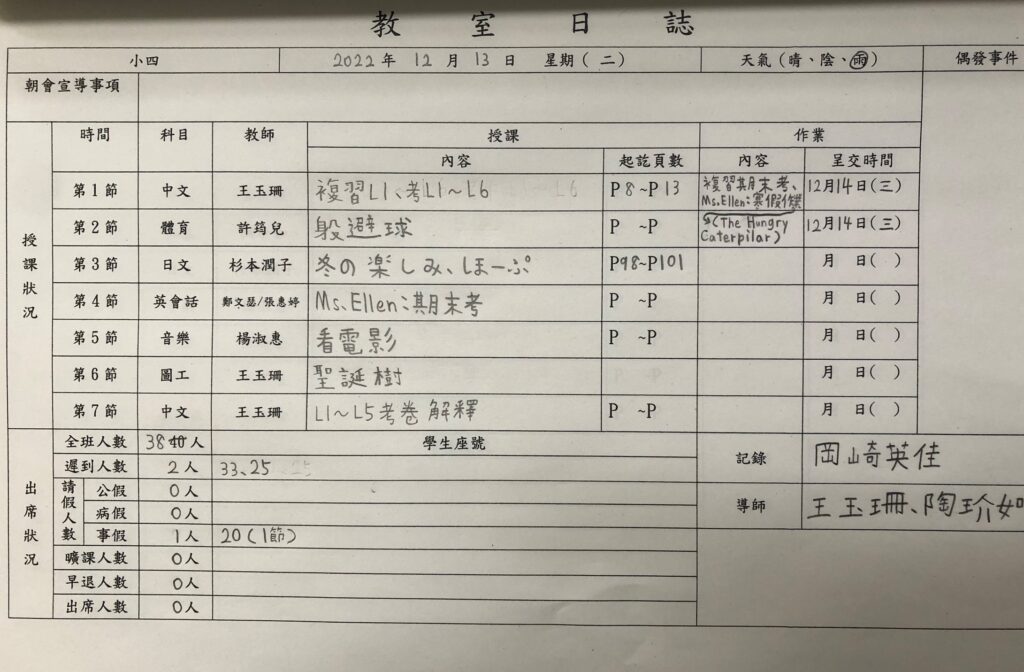 教室日誌
小四 2022年 12月 13日 星期(二) 天氣(晴、陰、雨) 偶發事件
朝會宣導事項
授課狀況 時間 科目 教師 授課 作業
內容 起訖頁數 內容 呈交時間
第1節 中文 王玉珊 複習L1、考L1～L6 P8~P13 複習期末考、 12月14日(三)
Ms.Ellen:寒假作業
第2節 體育 許筠兒 躲避球 P ~P (The Hungry 12月14日(三)
Caterpilar)
第3節 日文 杉本潤子 冬の楽しみ、ほーぷ P98~P101 月 日( )
第4節 英會話 鄭文瑟/張惠婷 Ms.Ellen:期末考 P ~P 月 日( )
第5節 音樂 楊淑惠 看電影 P ~P 月 日( )
第6節 圖工 王玉珊 聖誕樹 月 日( )
第7節 中文 王玉珊 L1～L5考卷解釋 P ~P 月 日( )
出席狀況 全班人數 3840人 學生座號
遲到人數 2人 33、25
請假人數 公假 0人
病假 0人
事假 1人 20(1節)
曠課人數 0人
早退人數 0人
出席人數 0人
記錄 岡崎英佳
導師 王玉珊、陶玠如